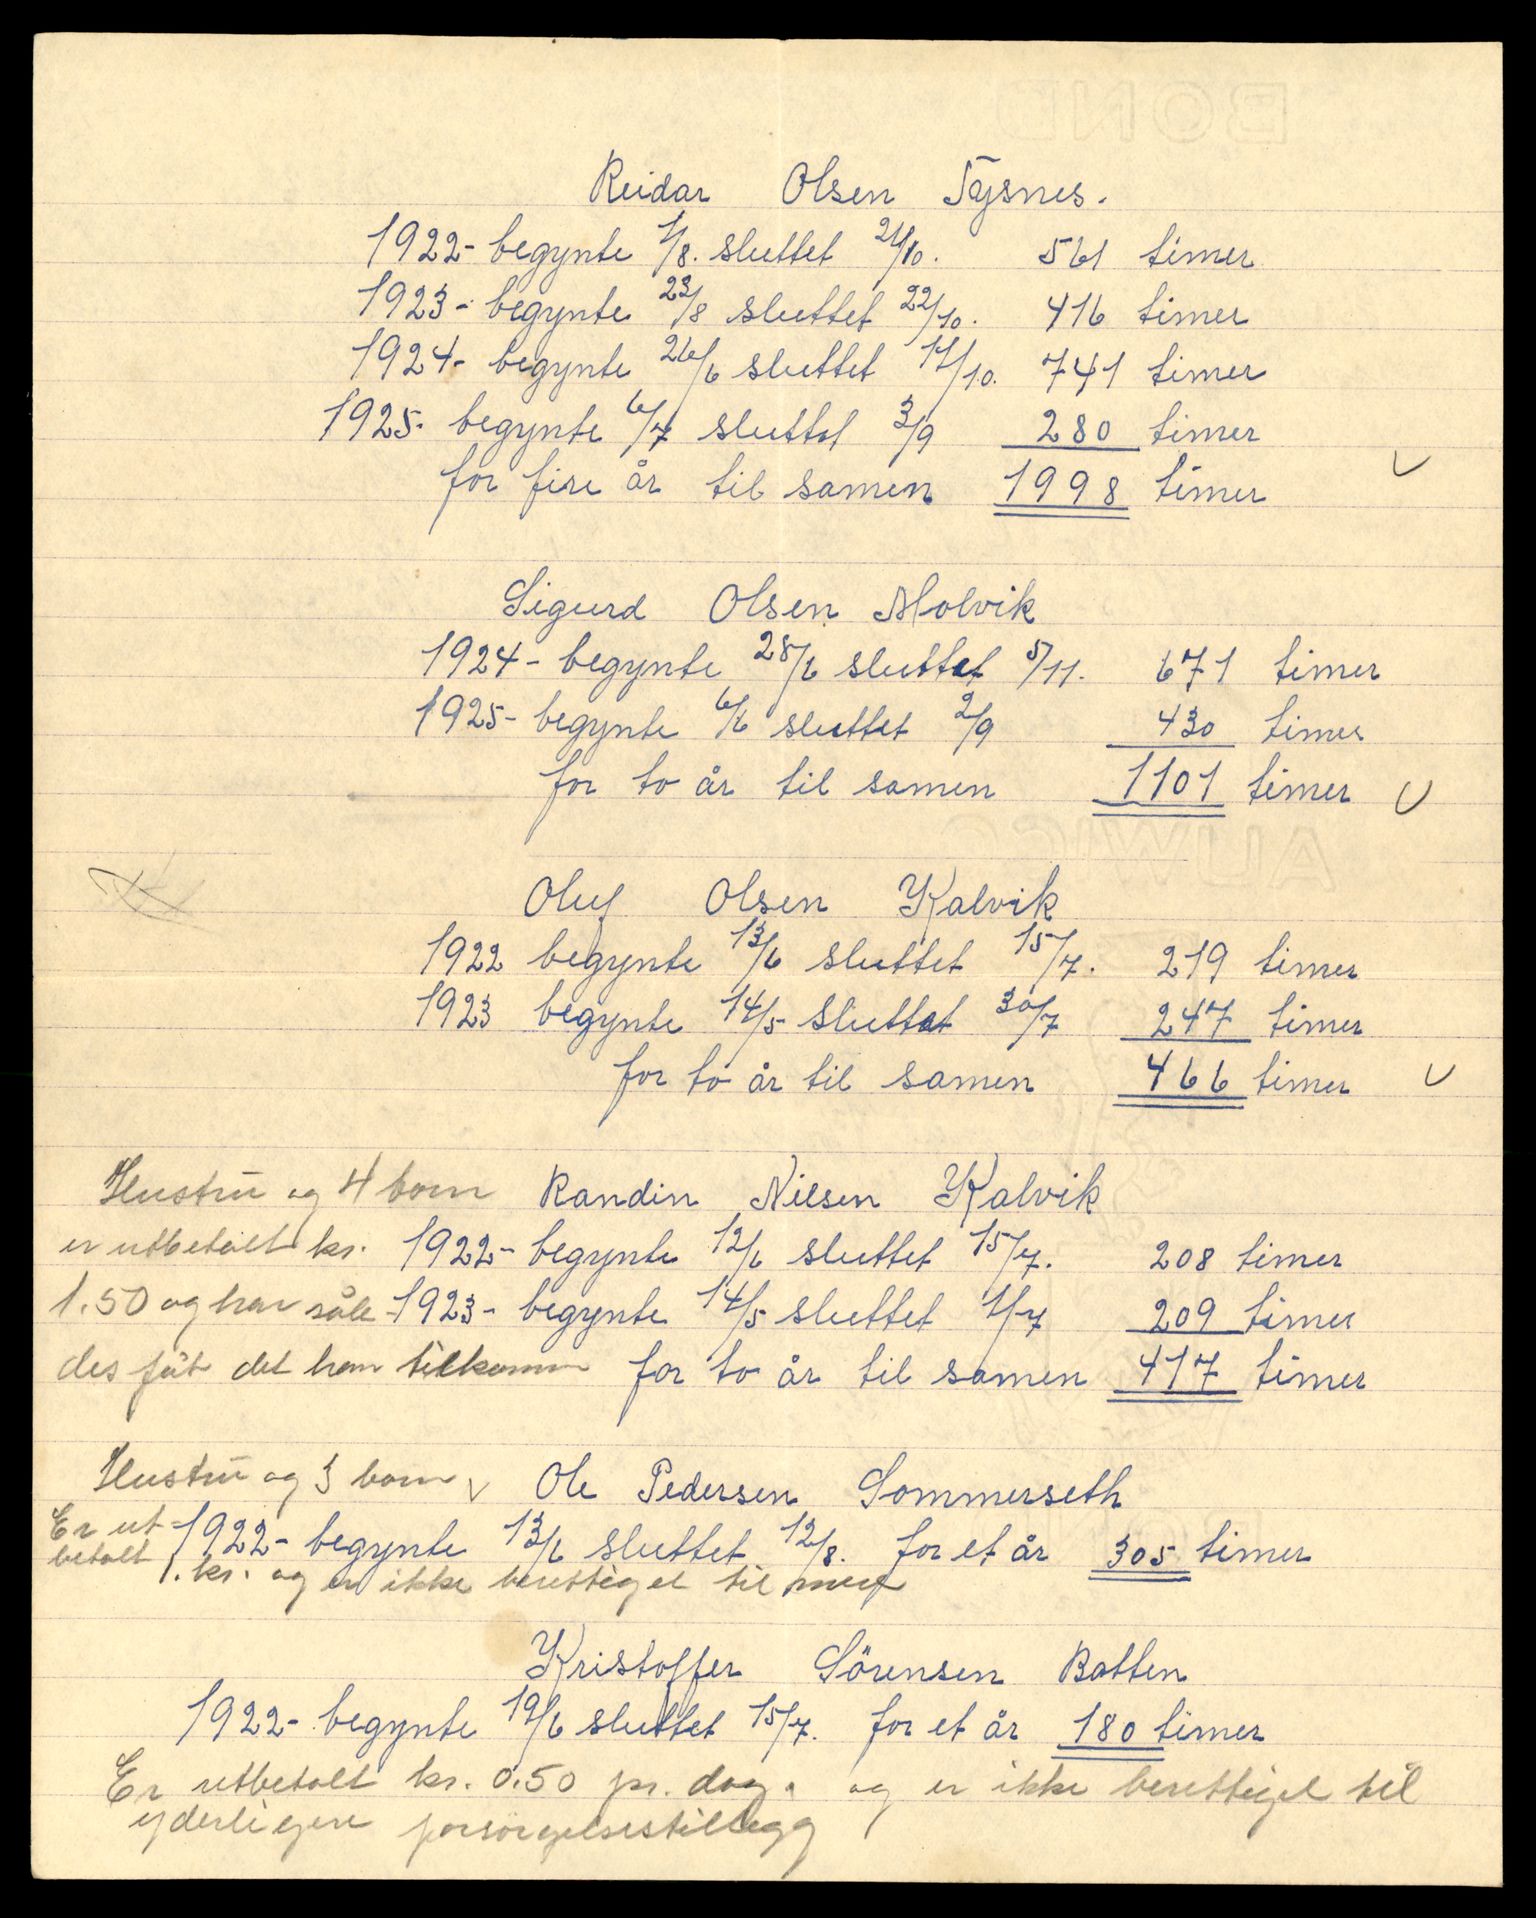 BOND
Reidar Olsen Tysnes.
1922- begynte 1/8. sluttet 21/10. 561 timer
1923- begynte 23/8 sluttet 22/10. 416 timer
1924- begynte 26/6 sluttet 14/10. 741 timer
1925. begynte 6/7 sluttet 3/9 280 timer
for fire år til samen 1998 timer
Sigurd Olsen Molvik
1924- begynte 28/6 sluttet 5/11. 671 timer
1925- begynte 6/6 sluttet 2/9 430 timer
for to år til samen 1101 timer
Oluf Olsen Kalvik
1922 begynte 13/6 sluttet 15/7. 219 timer
1923 begynte 14/5 sluttet 30/7 247 timer
for to år til samen 466 timer
Hustru og 4 born Randin Nilsen Kalvik
er utbetalt kr. 1922- begynte 12/6 sluttet 15/7. 208 timer
1.50 og har såle- 1923- begynte 14/5 sluttet 1/7 209 timer
des fåt det ham tilkomm for to år til samen 417 timer
Hustru og 3 born Ole Pedersen Sommerseth
Er ut-
betalt 1922- begynte 13/6 sluttet 12/8. for et år 305 timer
1. kr. og er ikke berettiget til mere
Kristoffer Sörensen Botten
1922- begynte 19/6 sluttet 15/7. for et år 180 timer
Er utbetalt kr. 0.50 pr. dag. og er ikke berettiget til
yderligere forsörgelsestillegg